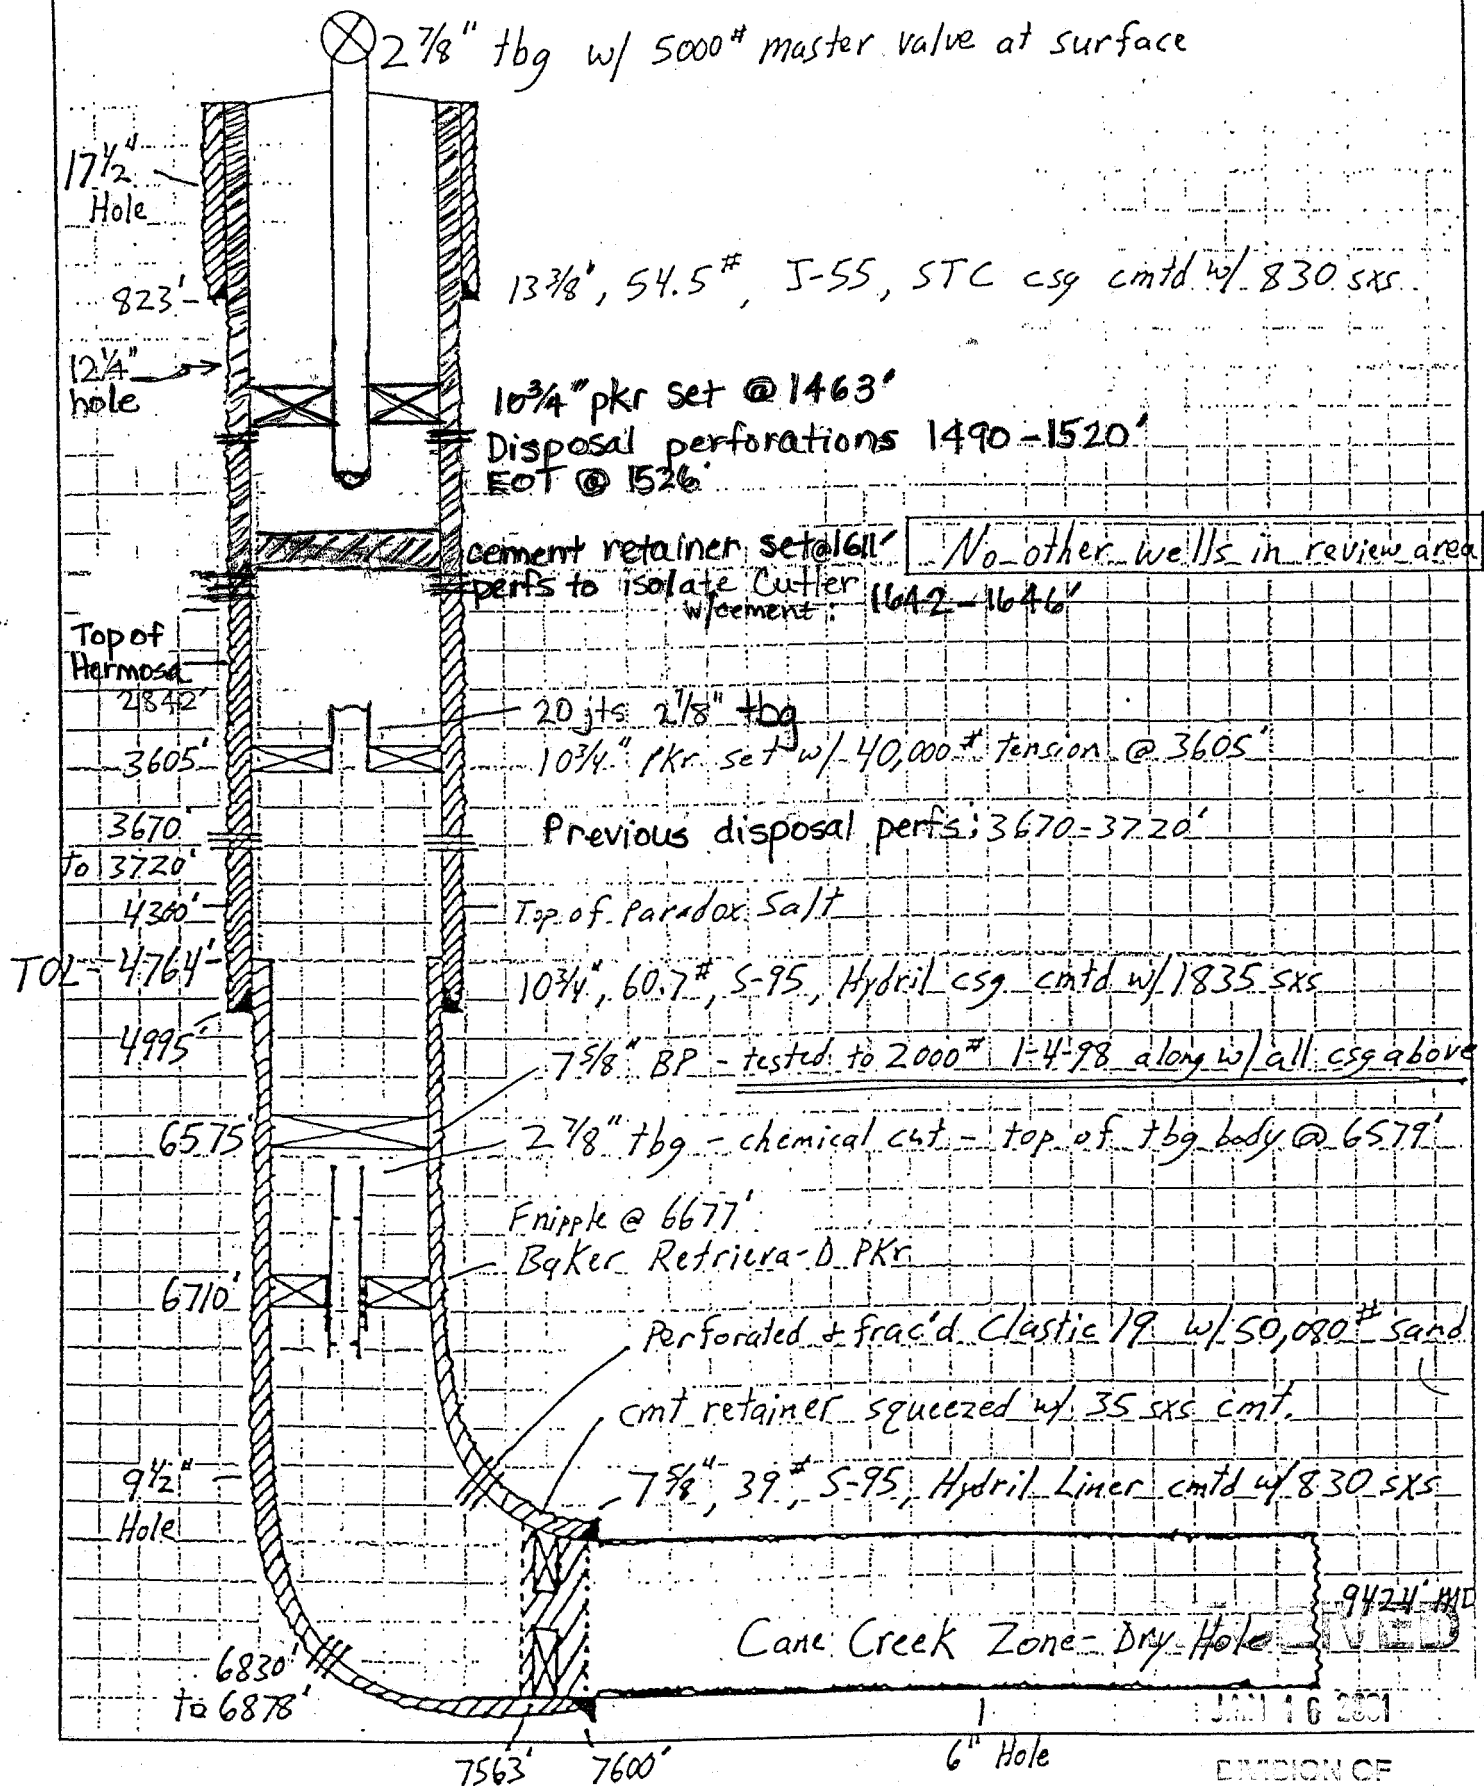 2 7/8" tbg w/ 5000# master valve at surface
17 1/2"
Hole
823'
13 3/8", 54.5#, J-55, STC csg cmtd w/ 830 sxs
12 1/4"
hole
10 3/4" pkr set @ 1463'
Disposal perforations 1490-1520'
EOT @ 1526'
cement retainer set @ 1611'
No other wells in review area
perfs to isolate Cutler
w/cement: 1642-1646'
Top of
Hermosa
2842'
20 jts 2 7/8" tbg
3605'
10 3/4" pkr set w/ 40,000# tension @ 3605'
3670'
to 3720'
Previous disposal perfs: 3670-3720'
4360'
Top of Paradox Salt
TOL - 4764'
10 3/4", 60.7#, S-95, Hydril csg cmtd w/ 1835 sxs
4995'
7 5/8" BP - tested to 2000# 1-4-98 along w/ all csg above
6575'
2 7/8" tbg - chemical cut - top of tbg body @ 6579'
F nipple @ 6677'
Baker Retrieva-D PKr
6710'
Perforated & frac'd Clastic 19 w/ 50,080# sand
cmt retainer squeezed w/ 35 sxs cmt.
9 1/2"
Hole
7 5/8", 39#, S-95, Hydril Liner cmtd w/ 830 sxs
9424' MD
Cane Creek Zone - Dry Hole
6830'
to 6878'
JAN 16 2001
7563'
7600'
6" Hole
DIVISION OF